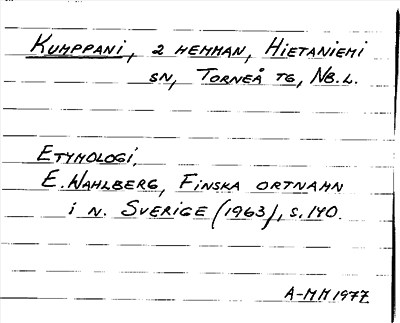 KUMPPANI, 2 HEMMAN, HIETANIEMI
SN, TORNEÅ TG, NB.L.
ETYMOLOGI,
E. WAHLBERG, FINSKA ORTNAMN
I N. SVERIGE (1963), S. 140.
A-MM 1977